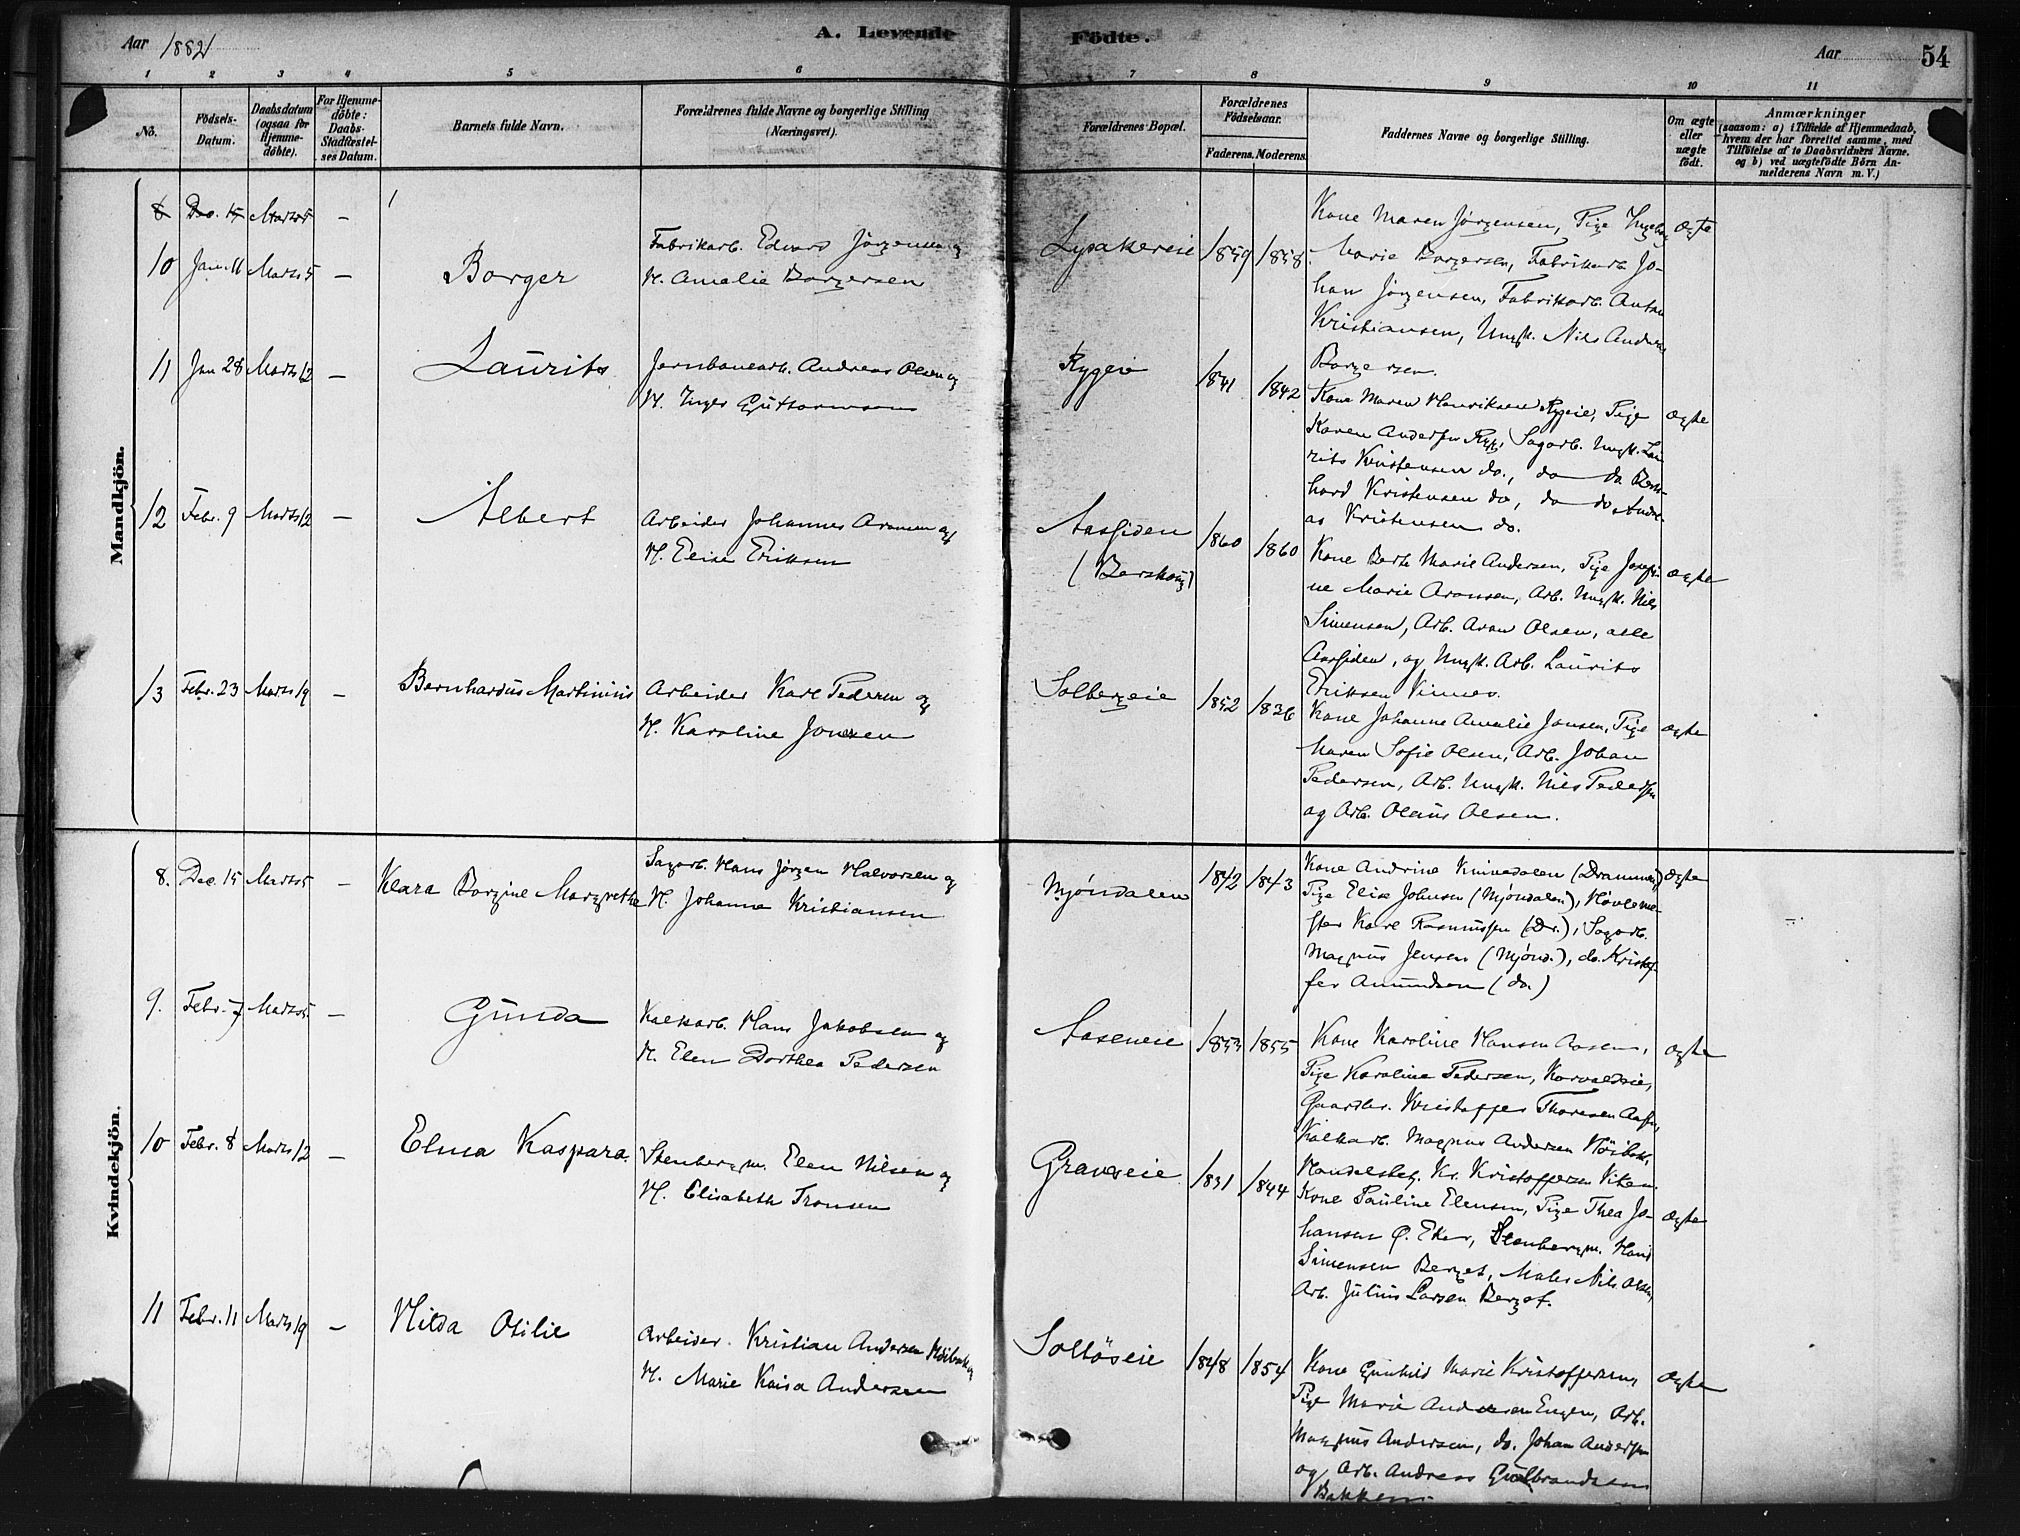 Aar 1882
A. Levende
Födte.
Aar
54
1 2 3 4 5 6 7 8 9 10 11
No.
Födsels-Datum.
Daabsdatum (ogsaa for Hjemme-döbte).
For Hjemme-döbte: Daabs-Stadfæstel-ses Datum.
Barnets fulde Navn.
Forældrenes fulde Navne og borgerlige Stilling (Næringsvei).
Forældrenes Bopæl.
Forældrenes Födselsaar.
Faderens. Moderens.
Faddernes Navne og borgerlige Stilling.
Om ægte eller uægte födt.
Anmærkninger
(saasom: a) i Tilfælde af Hjemmedaab,
hvem der har forrettet samme, med
Tilföielse af to Daabsvidners Navne.
og b) ved uægtefödte Börn An-
melderens Navn m. V.)
Mandkjön.
8 Dec. 15 Marts 5 –
10 Jan. 11 Marts 5 – Borger
Fabrikarb. Edvard Jørgensen og
H. Amalie Borgersen
Lysakereie 1859 1858
Kone Maren Jørgensen, Pige Ingeborg
Marie Borgersen, Fabrikarb. Jo-
han Jørgensen, Fabrikarb. Anton
Kristiansen, Ungk. Nils Anders
Borgersen.
ægte
11 Jan 28 Marts 12 – Laurits
Jernbanearb. Andreas Olsen og
H. Inger Guttormsen
Rygeie 1841 1842
Kone Maren Henriksen Rygeie, Pige
Karen Andersen Ryg, Sagarb. Ungk. Lau-
rits Kristensen do., do do Bern-
hard Kristensen do, do do Andre-
as Kristensen do.
ægte
12 Febr. 9 Marts 12 – Albert
Arbeider Johannes Aronsen og
H. Elise Eriksen
Aassiden
(Berskoug)
1860 1860
Kone Berthe Marie Andersen, Pige Josefi-
ne Marie Aronsen, Arb. Ungk. Nils
Simensen, Arb. Aron Olsen, alle
Aassiden, og Ungk. Arb. Laurits
Eriksen Vinnes.
ægte
13 Febr. 23 Marts 19 – Bernhardus Martinius
Arbeider Karl Pedersen og
H. Karoline Jonsen
Solbergeie 1852 1836
Kone Johanne Amalie Jansen, Pige
Maren Sofie Olsen, Arb. Johan
Pedersen, Arb. Ungk. Nils Pedersen
og Arb. Olaus Olsen.
ægte
Kvindekjön.
8. Dec. 15 Marts 5 – Klara Borgine Margrethe
Sagarb. Hans Jørgen Halvorsen og
H. Johanne Kristiansen
Mjøndalen 1842 1843
Kone Andrine Knivedalen (Drammen)
Pige Elise Johnsen (Mjøndalen), Høvleme-
ster Karl Rasmussen (Dr.), Sagarb.
Magnus Jensen (Mjønd.), do. Kristof-
fer Amundsen (do.)
ægte
9. Febr. 7 Marts 5 – Gunda
Kalkarb. Hans Jakobsen og
H. Elen Dorthea Pedersen
Aaseneie 1853 1855
Kone Karoline Hansen Aasen,
Pige Karoline Pedersen, Korvaldeie,
Gaardbr. Kristoffer Thoresen Aasen,
Kalkarb. Magnus Andersen Høibak,
Handelsbetj. Kr. Kristoffersen Viken
ægte
10 Febr. 8 Marts 12 – Elma Kaspara.
Stenbergm. Elen Nilsen og
H. Elisabeth Tronsen
Gravseie 1831 1844
Kone Pauline Elensen, Pige Thea Jo-
hansen Ø. Eker, Stenbergm. Hans
Simensen Berget, Maler Nils Olsen,
Arb. Julius Larsen Berget.
ægte
11 Febr. 11 Marts 19 – Hilda Otilie
Arbeider Kristian Andersen Høibak og
H. Marie Kaisa Andersen
Soltöseie 1848 1854
Kone Gunhild Marie Kristoffersen,
Pige Marie Andersen Engen, Arb.
Magnus Andersen, do. Johan Andersen
og Arb. Andreas Gulbrandsen
Bakken.
ægte